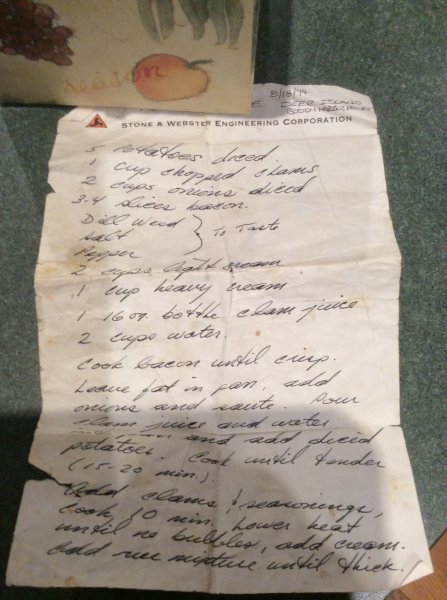 8/18/94
DEER ISLAND
BOSTON HARBOR PROJECT
STONE & WEBSTER ENGINEERING CORPORATION
5 potatoes diced
1 cup chopped clams
2 cups onions diced
3-4 slices bacon.
Dill Weed
Salt } To Taste
Pepper
2 cups light cream
1 cup heavy cream
1 16 oz. bottle clam juice
2 cups water.
Cook bacon until crisp.
Leave fat in pan, add
onions and saute. Pour
clam juice and water
and add diced
potatoes. Cook until tender
(15-20 min.).
Add clams & seasonings,
Cook 10 min. Lower heat
until no bubbles, add cream.
Add mixture until thick.